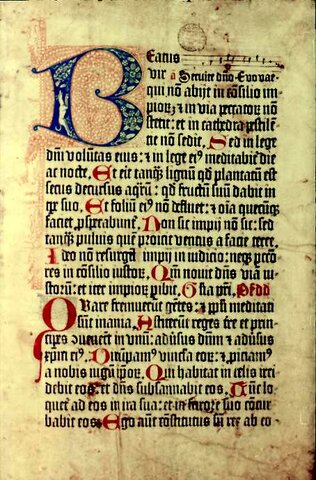 Beatus
vir ã Seruite dño. Euouae
qui nõ abijt in cõsilio im
pioꝝ ⁊ in via pccatoꝝ nõ
stetit: et in cathedra pestilẽ
tie nõ sedit. Sed in lege
dñi volũtas eius: ⁊ in lege eiꝰ meditabit̃ die
ac nocte. Et erit tanq̃ lignũ qd̓ plantatũ est
secus decursus aq̃rũ: qd̓ fructũ suũ dabit in
tpr̃ suo. Et foliũ eiꝰ nõ defluet: ⁊ oĩa quecũq̃
faciet ꝓsperabunt̃. Non sic impij nõ sic: sed
tanq̃ puluis quẽ proicit ventus a facie terre.
Ideo nõ resurgũt impij in iudicio: neq̃ pccõ
res in cõsilio iustoꝝ. Qm̃ nouit dñs viã iu
storũ: et iter impioꝝ ꝑibit. Gl̓ia pr̃i.
Quare fremuerũt gẽtes: ⁊ ppl̓i meditati
sunt inania. Astiterũt reges tre et prin
cipes ꝯuenerũt in vnũ: adũsus dñm ⁊ adũsus
xpm̃ eiꝰ. Dirũpamꝰ vincl̓a eoꝝ: ⁊ ꝓiciamꝰ
a nobis iugũ ip̃oꝝ. Qui habitat in celis irri
debit eos: et dñs subsannabit eos. Tũc lo
quet̃ ad eos in ira sua: et in furore suo cõtur
babit eos. Ego aũt constitutus sũ rex ab eo